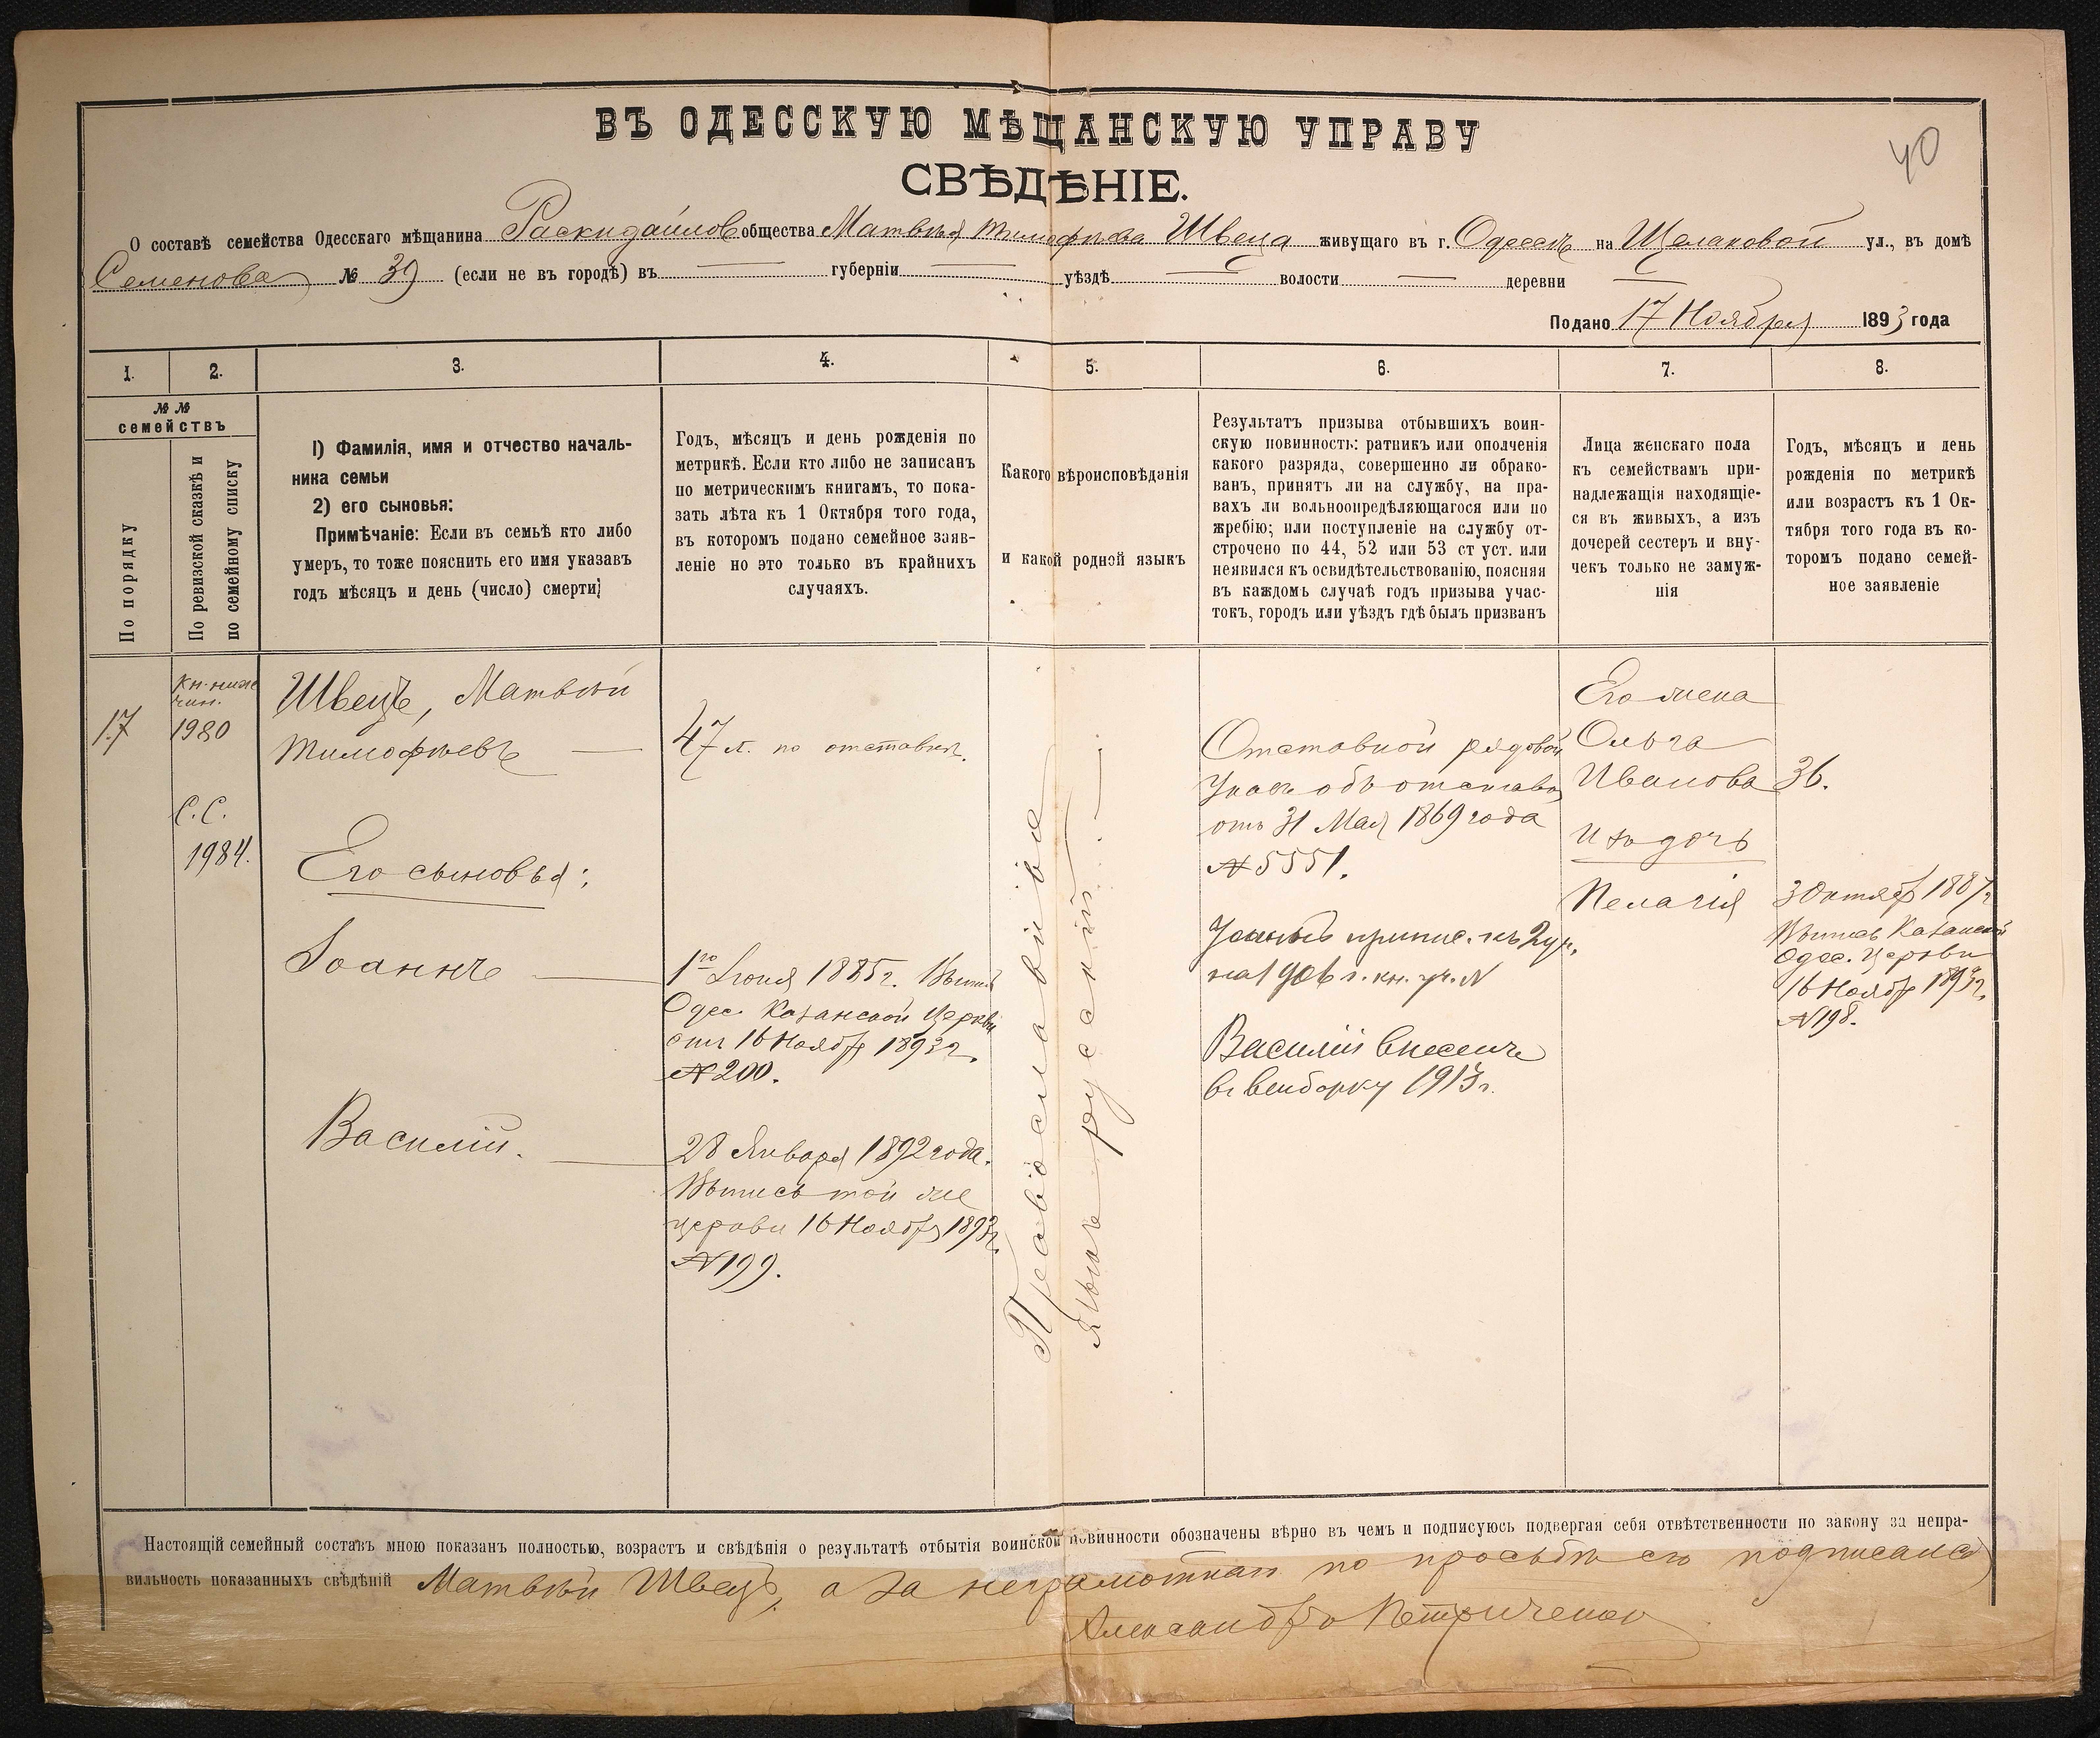 ВЪ ОДЕССКУЮ МѢЩАНСКУЮ УПРАВУ
40
СВѢДѢНІЕ.
О составѣ семейства Одесскаго мѣщанина Раскидайлов общества Матвѣя Тимофѣева Швеца живущаго въ г. Одессѣ на ул., въ домѣ
Семенова № 39 (если не въ городѣ) въ — губерніи — уѣздѣ — волости — деревни —
Подано 17 Ноября 1893 года
1. 2. 3. 4. 5. 6. 7. 8.
№ №
семействъ
По порядку
По ревизской сказкѣ и
по семейному списку
1) Фамилія, имя и отчество началь-
ника семьи
2) его сыновья:
Примѣчаніе: Если въ семьѣ кто либо
умеръ, то тоже пояснить его имя указавъ
годъ мѣсяцъ и день (число) смерти;
Годъ, мѣсяцъ и день рожденія по
метрикѣ. Если кто либо не записанъ
по метрическимъ книгамъ, то пока-
зать лѣта къ 1 Октября того года,
въ которомъ подано семейное заяв-
леніе но это только въ крайнихъ
случаяхъ.
Какого вѣроисповѣданія
и какой родной языкъ
Результатъ призыва отбывшихъ воин-
скую повинность: ратникъ или ополченія
какого разряда, совершенно ли обрако-
ванъ, принятъ ли на службу, на пра-
вахъ ли вольноопредѣляющагося или по
жребію; или поступленіе на службу от-
строчено по 44, 52 или 53 ст уст. или
неявился къ освидѣтельствованію, поясняя
въ каждомъ случаѣ годъ призыва учас-
токъ, городъ или уѣздъ гдѣ былъ призванъ
Лица женскаго пола
къ семействамъ при-
надлежащія находящіе-
ся въ живыхъ, а изъ
дочерей сестеръ и вну-
чекъ только не замуж-
нія
Годъ, мѣсяцъ и день
рожденія по метрикѣ
или возрастъ къ 1 Ок-
тября того года въ ко-
торомъ подано семей-
ное заявленіе
17
кн. ниж
чин.
1980
С.С.
1984.
Швецъ, Матвѣй
Тимофѣевъ —
Его сыновья:
Іоаннъ —
Василій. —
47 л. по отставкѣ.
1го Іюня 1885 г. Выпись
Одес. Казанской Церкви
отъ 16 Ноябр 1893 г.
№ 200.
28 Января 1892 года.
Выпись той же
церкви 16 Ноября 1893 г.
№ 199.
Православные
языкъ русскій. —
Отставной рядовой
Указъ объ отставкѣ
отъ 31 Мая 1869 года
№ 5551.
припис. къ 2 уч.
на 1906 г. кн. уч. №
Василій внесенъ
въ выборку 1913 г.
Его жена
Ольга
Иванова
Ихъ дочь
Пелагія
36.
3 Октябр 1887 г.
Выпись Казанской
Одес. Церкви
16 Ноябр 1893 г.
№ 198.
Настоящій семейный составъ мною показанъ полностью, возрастъ и свѣдѣнія о результатѣ отбытія воинской повинности обозначены вѣрно въ чемъ и подписуюсь подвергая себя отвѣтственности по закону за непра-
вильность показанныхъ свѣдѣній Матвѣй Швецъ, а за неграмотнаго по просьбѣ его подписался
Александръ Петриченко